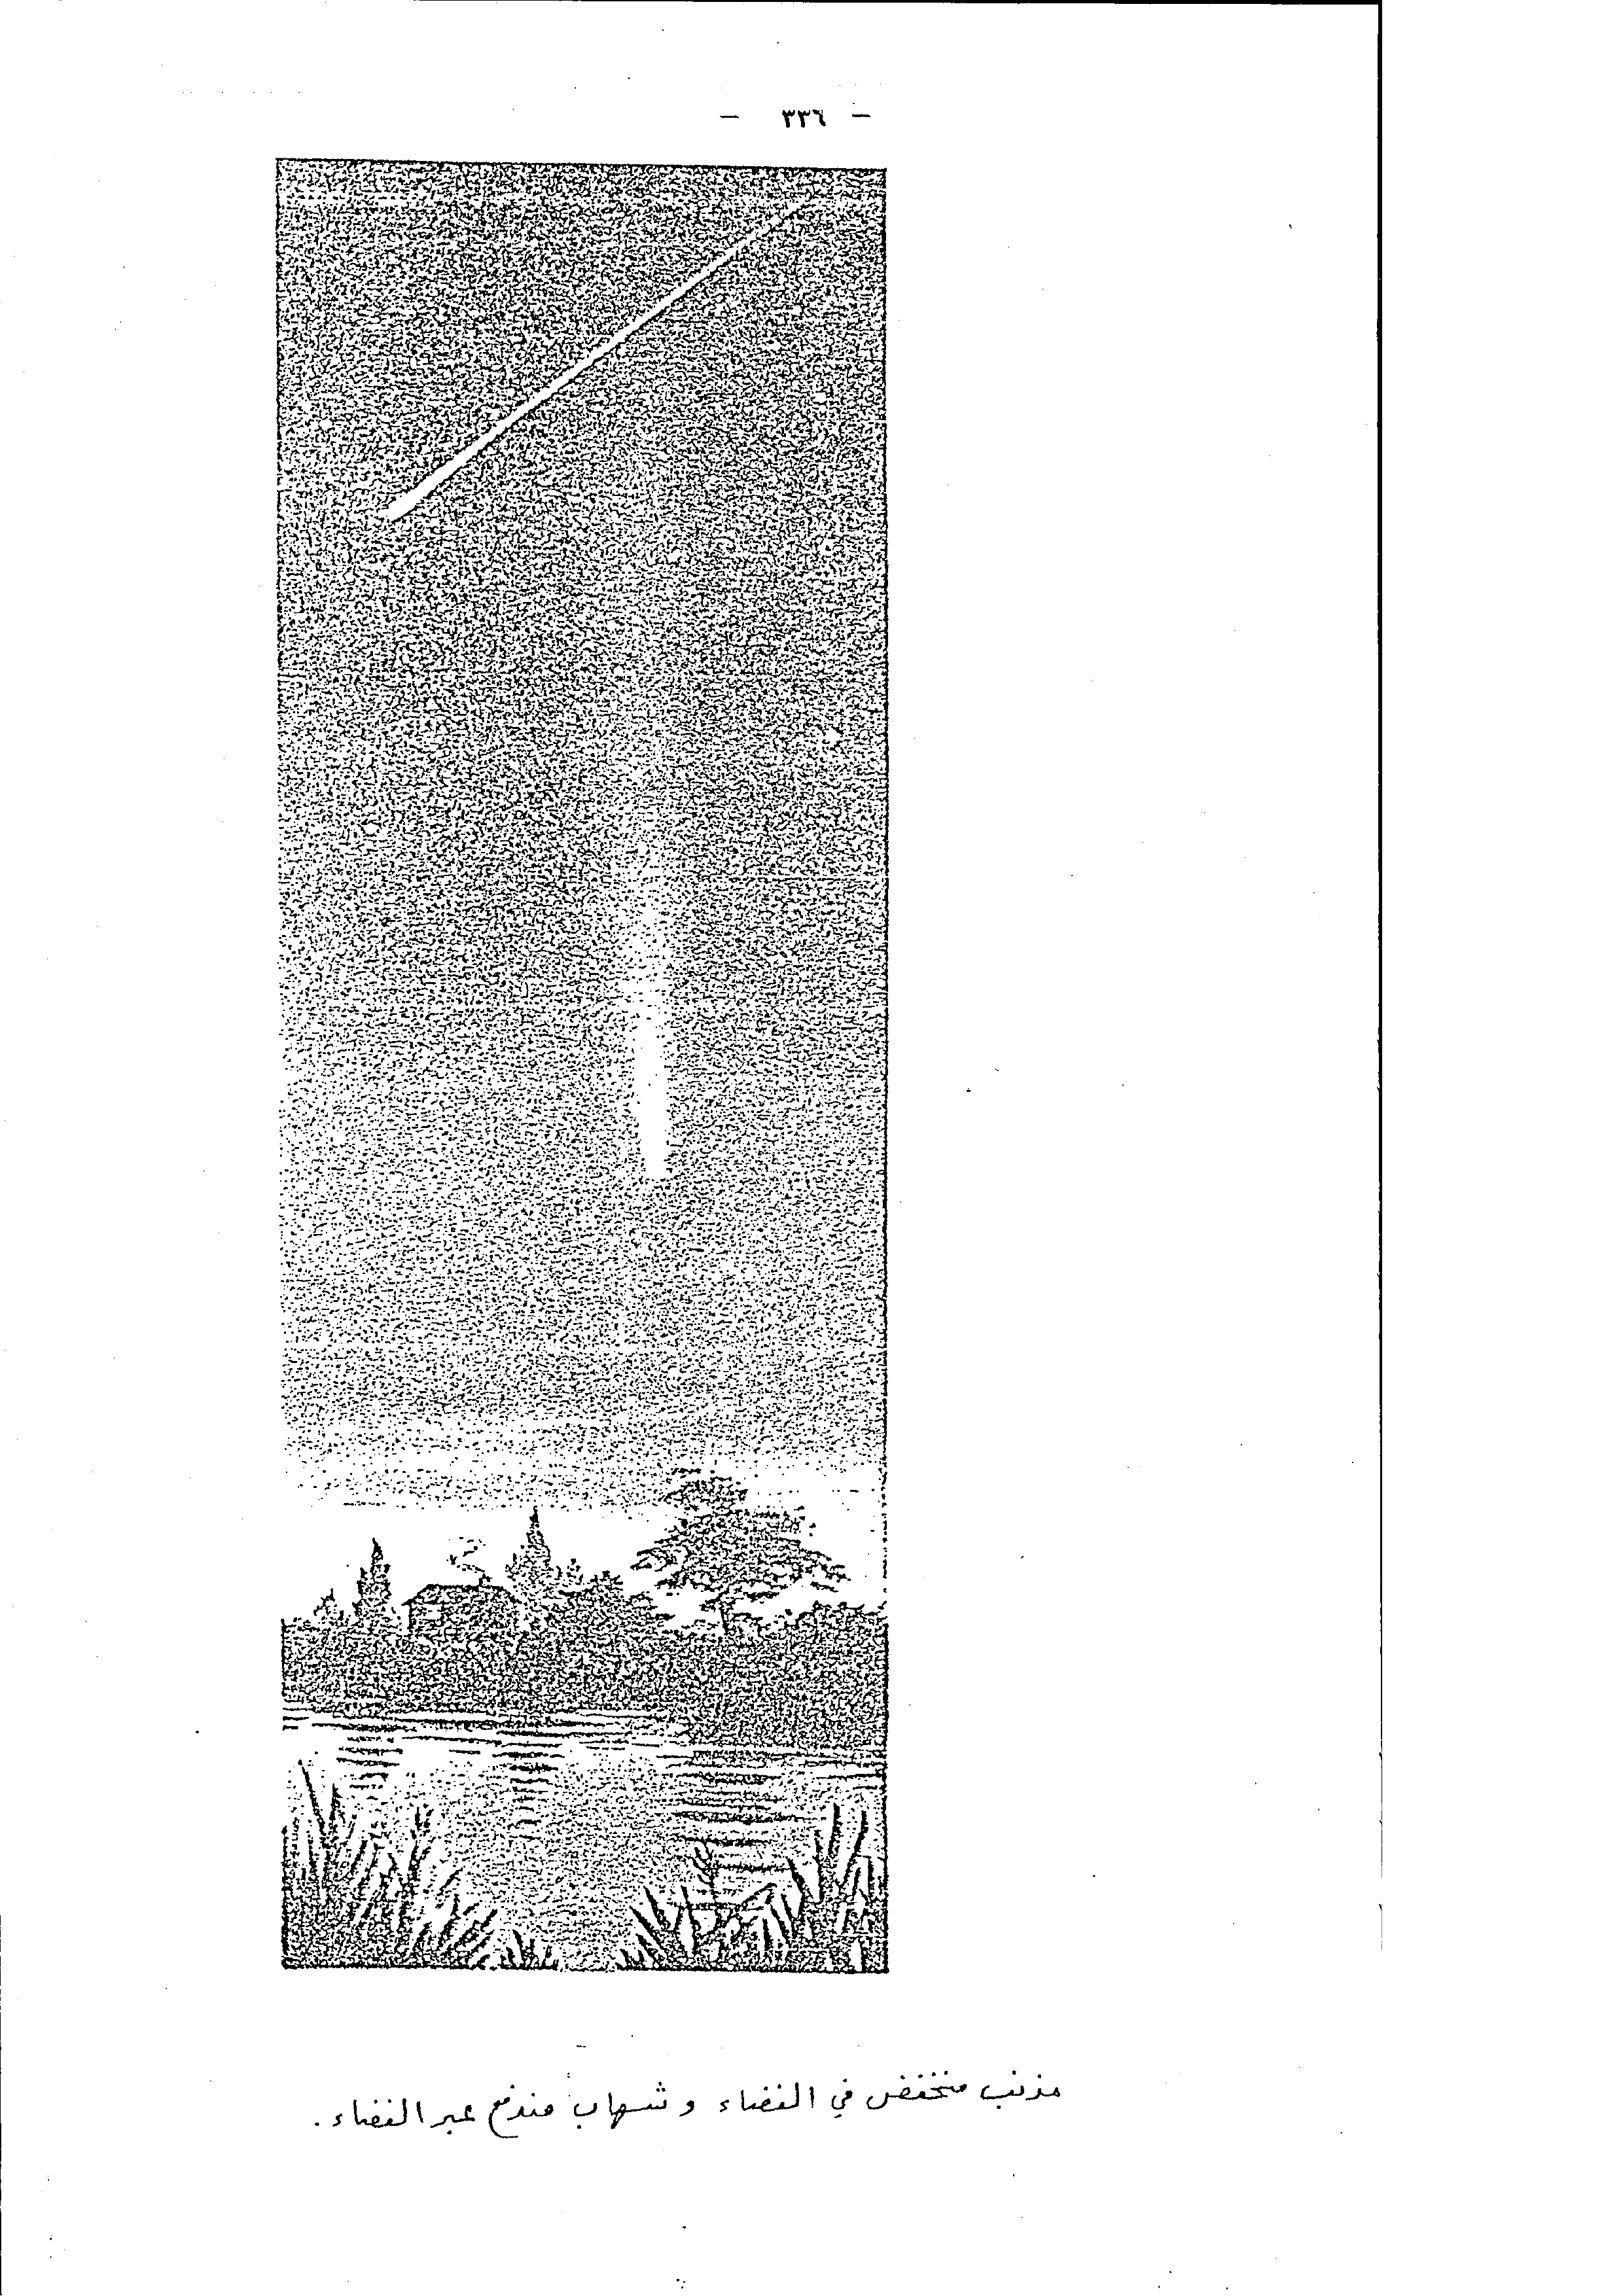 - ٣٣٦ -
مذنب منخفض في الفضاء و شهاب مندفع عبر الفضاء.